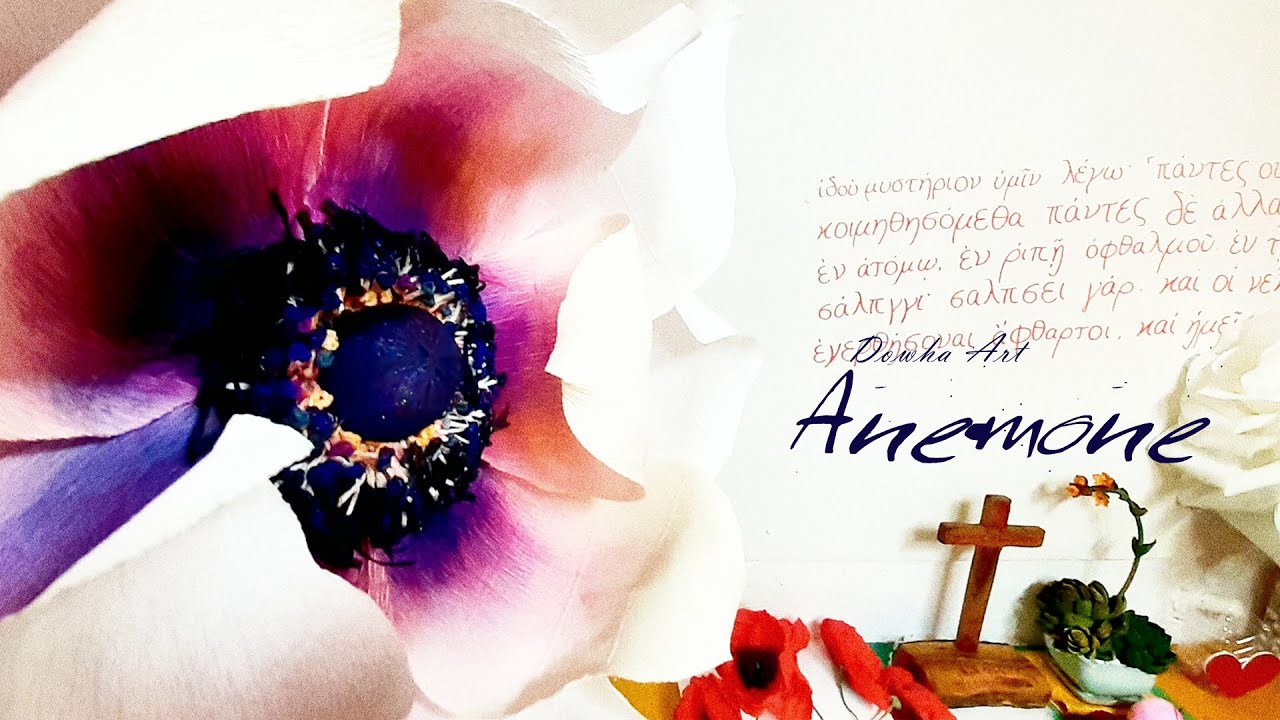 ἰδοὺ μυστήριον ὑμῖν λέγω· πάντες οὐ
κοιμηθησόμεθα πάντες δὲ ἀλλα
ἐν ἀτόμῳ, ἐν ῥιπῇ ὀφθαλμοῦ, ἐν τ
σάλπγγι· σαλπσει γὰρ. καὶ οἱ νεκ
ἄφθαρτοι, καὶ ἡμεῖς
Dowha Art
Anemone